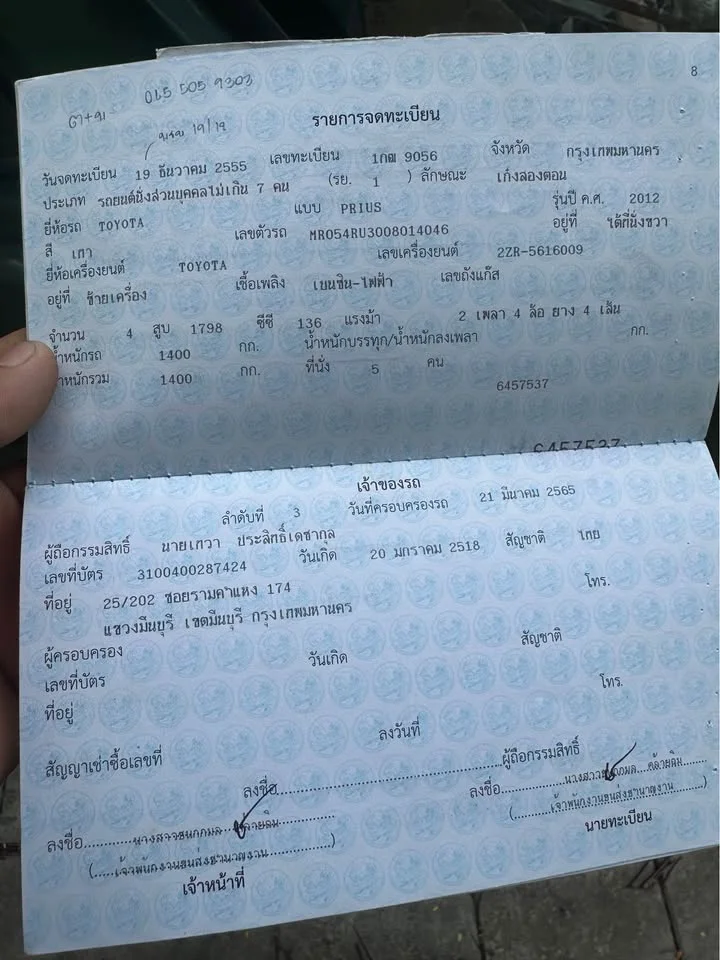 8
065 505 9303
รายการจดทะเบียน
19/12
วันจดทะเบียน 19 ธันวาคม 2555 เลขทะเบียน 1กฌ 9056 จังหวัด กรุงเทพมหานคร
ประเภท รถยนต์นั่งส่วนบุคคลไม่เกิน 7 คน (รย. 1 ) ลักษณะ เก๋งสองตอน
ยี่ห้อรถ TOYOTA แบบ PRIUS รุ่นปี ค.ศ. 2012
สี เทา เลขตัวรถ MR054RU3008014046 อยู่ที่ ใต้ที่นั่งขวา
ยี่ห้อเครื่องยนต์ TOYOTA เลขเครื่องยนต์ 2ZR-5616009
อยู่ที่ ซ้ายเครื่อง เชื้อเพลิง เบนซิน-ไฟฟ้า เลขถังแก๊ส
จำนวน 4 สูบ 1798 ซีซี 136 แรงม้า 2 เพลา 4 ล้อ ยาง 4 เส้น
น้ำหนักรถ 1400 กก. น้ำหนักบรรทุก/น้ำหนักลงเพลา กก.
น้ำหนักรวม 1400 กก. ที่นั่ง 5 คน
6457537
6457537
เจ้าของรถ
ลำดับที่ 3 วันที่ครอบครองรถ 21 มีนาคม 2565
ผู้ถือกรรมสิทธิ์ นายเทวา ประสิทธิ์เดชากุล
เลขที่บัตร 3100400287424 วันเกิด 20 มกราคม 2518 สัญชาติ ไทย
ที่อยู่ 25/202 ซอยรามคำแหง 174 โทร.
แขวงมีนบุรี เขตมีนบุรี กรุงเทพมหานคร
ผู้ครอบครอง
เลขที่บัตร วันเกิด สัญชาติ
ที่อยู่ โทร.
สัญญาเช่าซื้อเลขที่ ลงวันที่
ลงชื่อ ผู้ถือกรรมสิทธิ์
ลงชื่อ นางสาว
(เจ้าพนักงานขนส่งชำนาญงาน)
เจ้าหน้าที่
ลงชื่อ นางสาว
(เจ้าพนักงานขนส่งชำนาญงาน)
นายทะเบียน